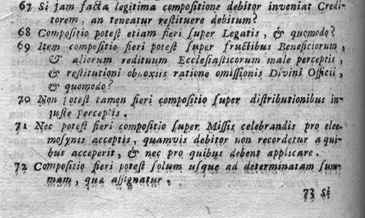 67 Si jam facta legitima compositione debitor inveniat Credi-
torem, an teneatur restituere debitum?
68 Compositio potest etiam fieri super Legatis, & quomodo?
69 Item compositio fieri potest super fructibus Beneficiorum,
& aliorum redituum Ecclesiasticorum male perceptis,
& restitutioni obnoxiis ratione omissionis Divini Officii,
& quomodo?
70 Non potest tamen fieri compositio super distributionibus in-
juste perceptis.
71 Nec potest fieri compositio super Missis celebrandis pro elee-
mosynis acceptis, quamvis debitor non recordetur a qui-
bus acceperit, & nec pro quibus debent applicare.
72 Compositio fieri potest solum usque ad determinatam sum-
mam, quæ assignatur.
73 Si